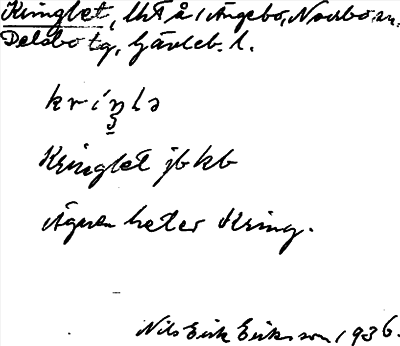 Kringlet, lht å i Ängebo, Norrbo sn.
Delsbo tg, Gävleb. l.
kríŋlə
Kringlet jbkb
Ägaren heter Kring.
Nils Erik Eriksson 1936.